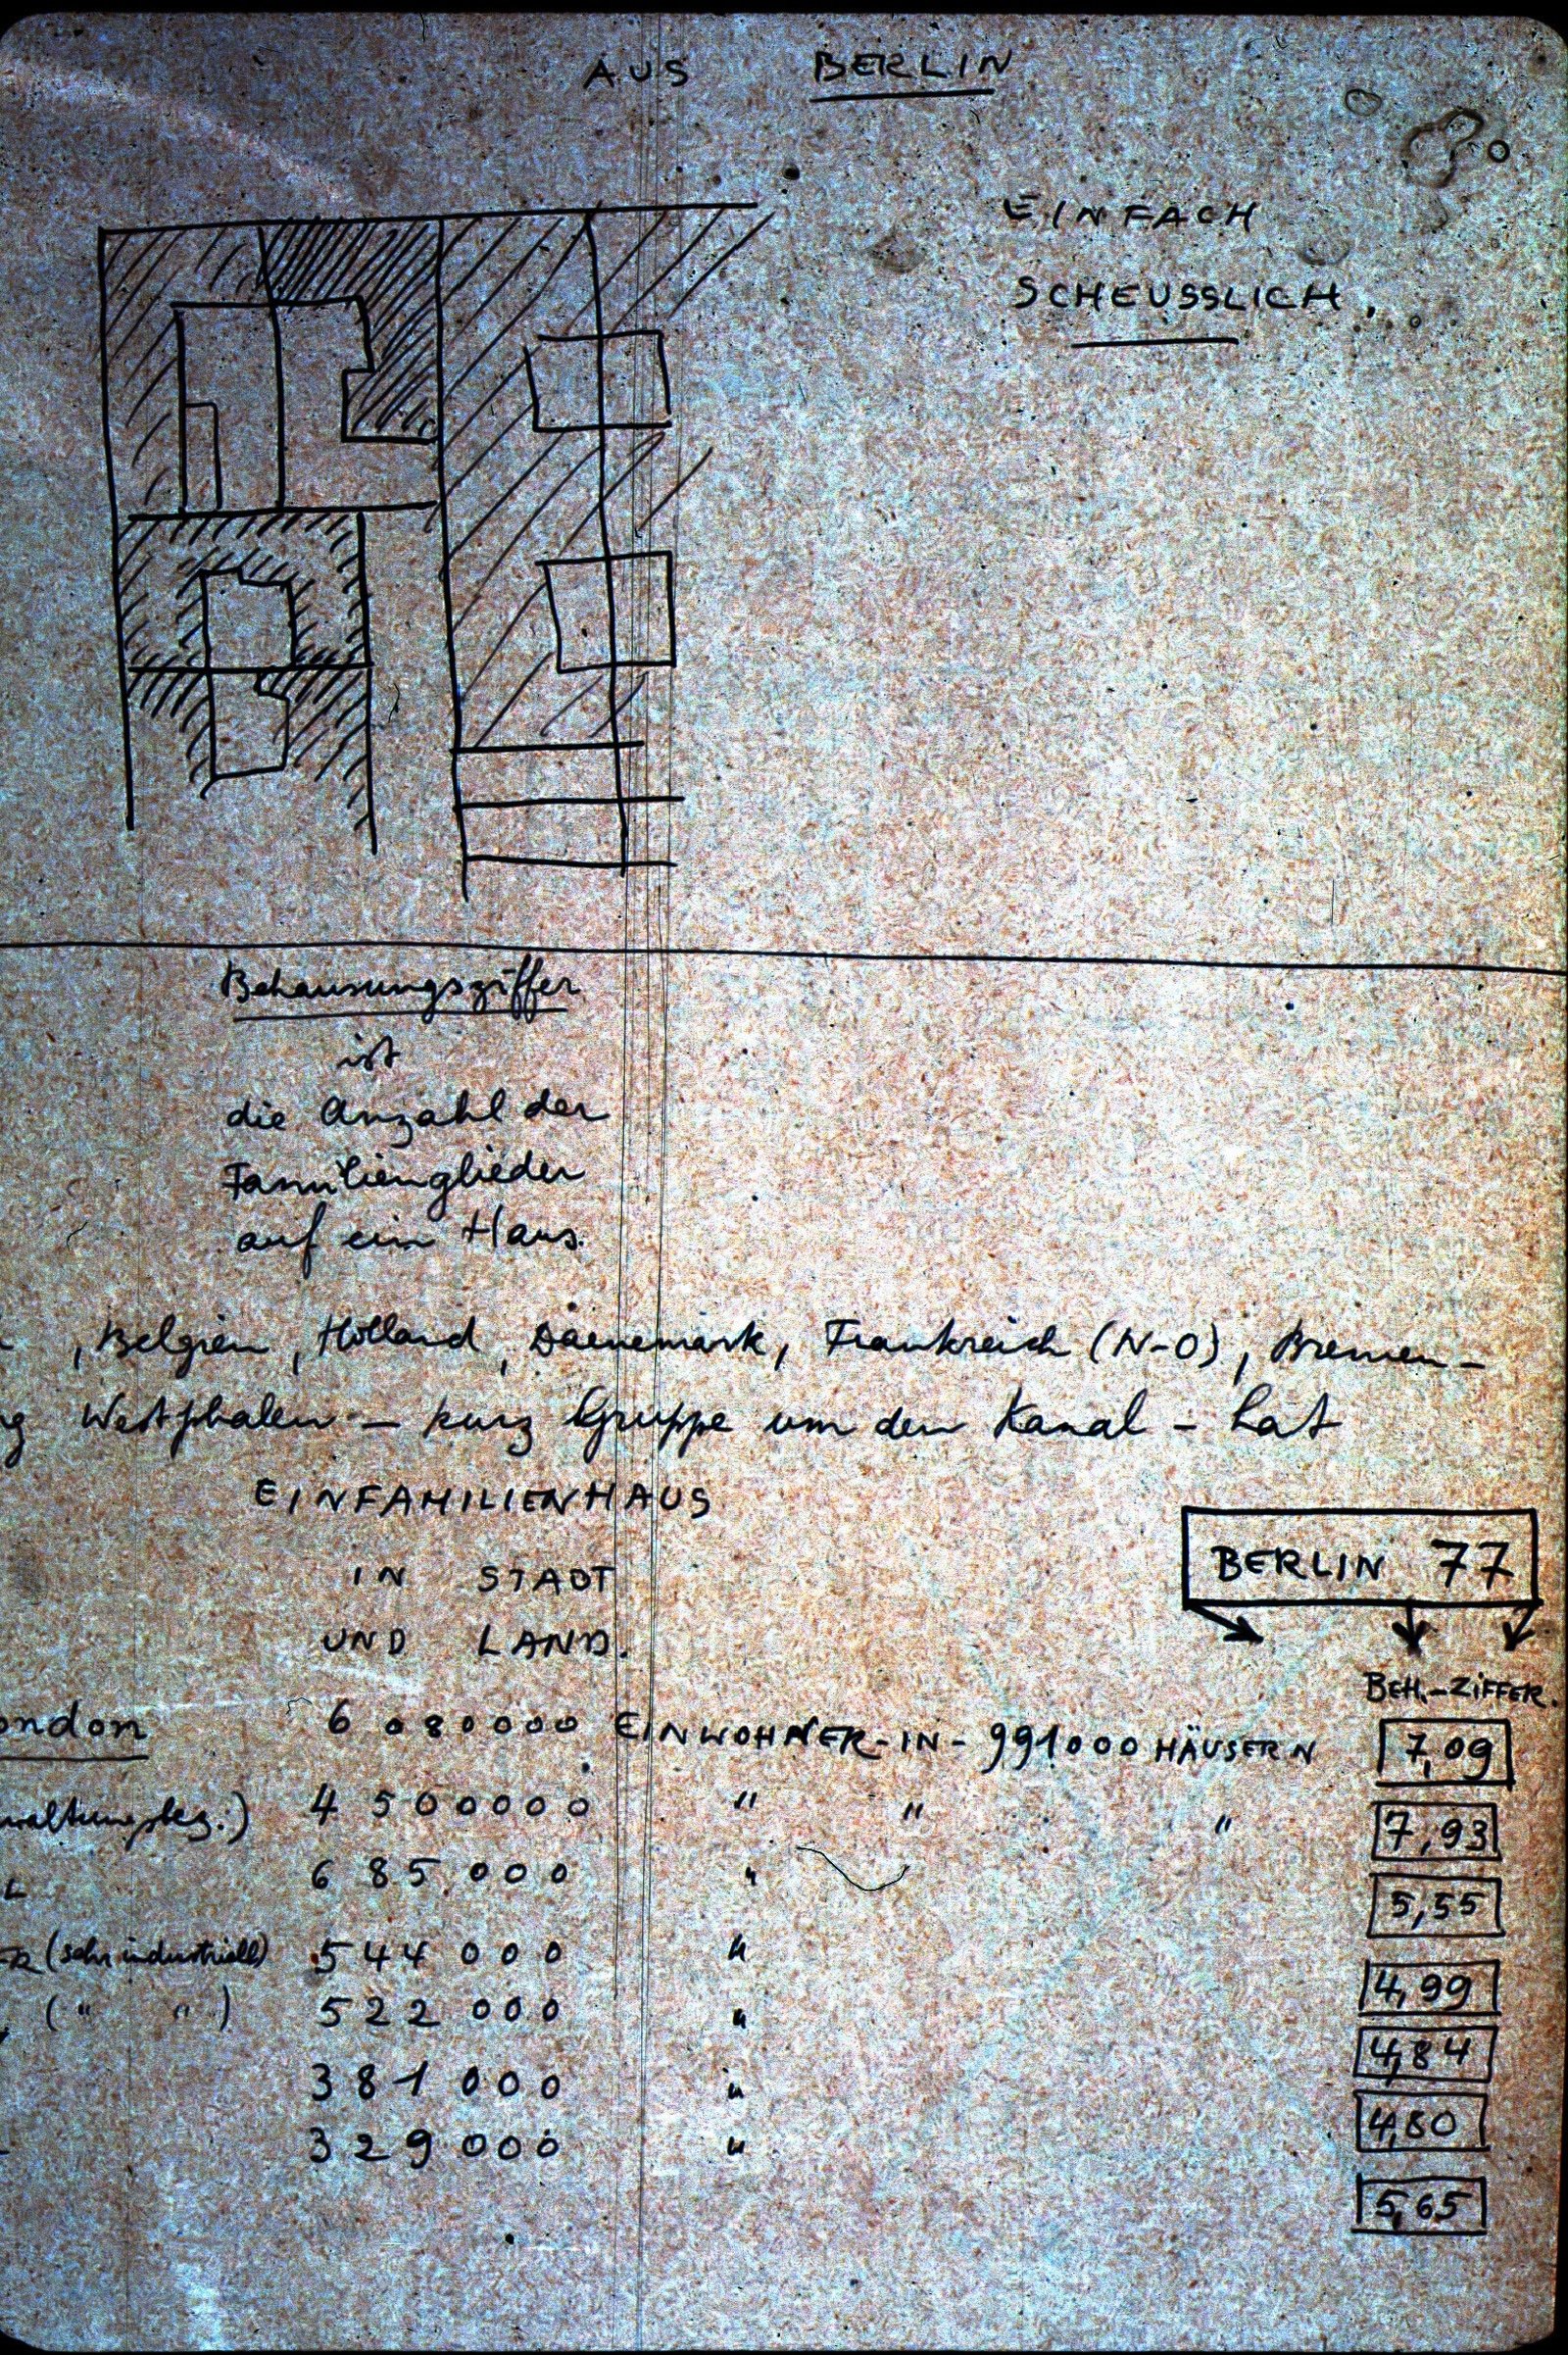 AUS BERLIN
EINFACH
SCHEUSSLICH.
Behausungsziffer
ist
die Anzahl der
Familienglieder
auf ein Haus.
, Belgien, Holland, Daenemark, Frankreich (N-O), Bremen-
Westphalen - kurz Gruppe um den Kanal - hat
EINFAMILIENHAUS
IN STADT
UND LAND.
BERLIN 77
BEH.-ZIFFER.
ondon 6 080000 EINWOHNER-IN- 991000 HÄUSERN 7,09
waltungsbez.) 4 500000 " " " 7,93
L 685000 " 5,55
ER (sehr industriell) 544 000 " 4,99
( " " ) 522 000 " 4,84
381 000 " 4,80
329 000 " 5,65